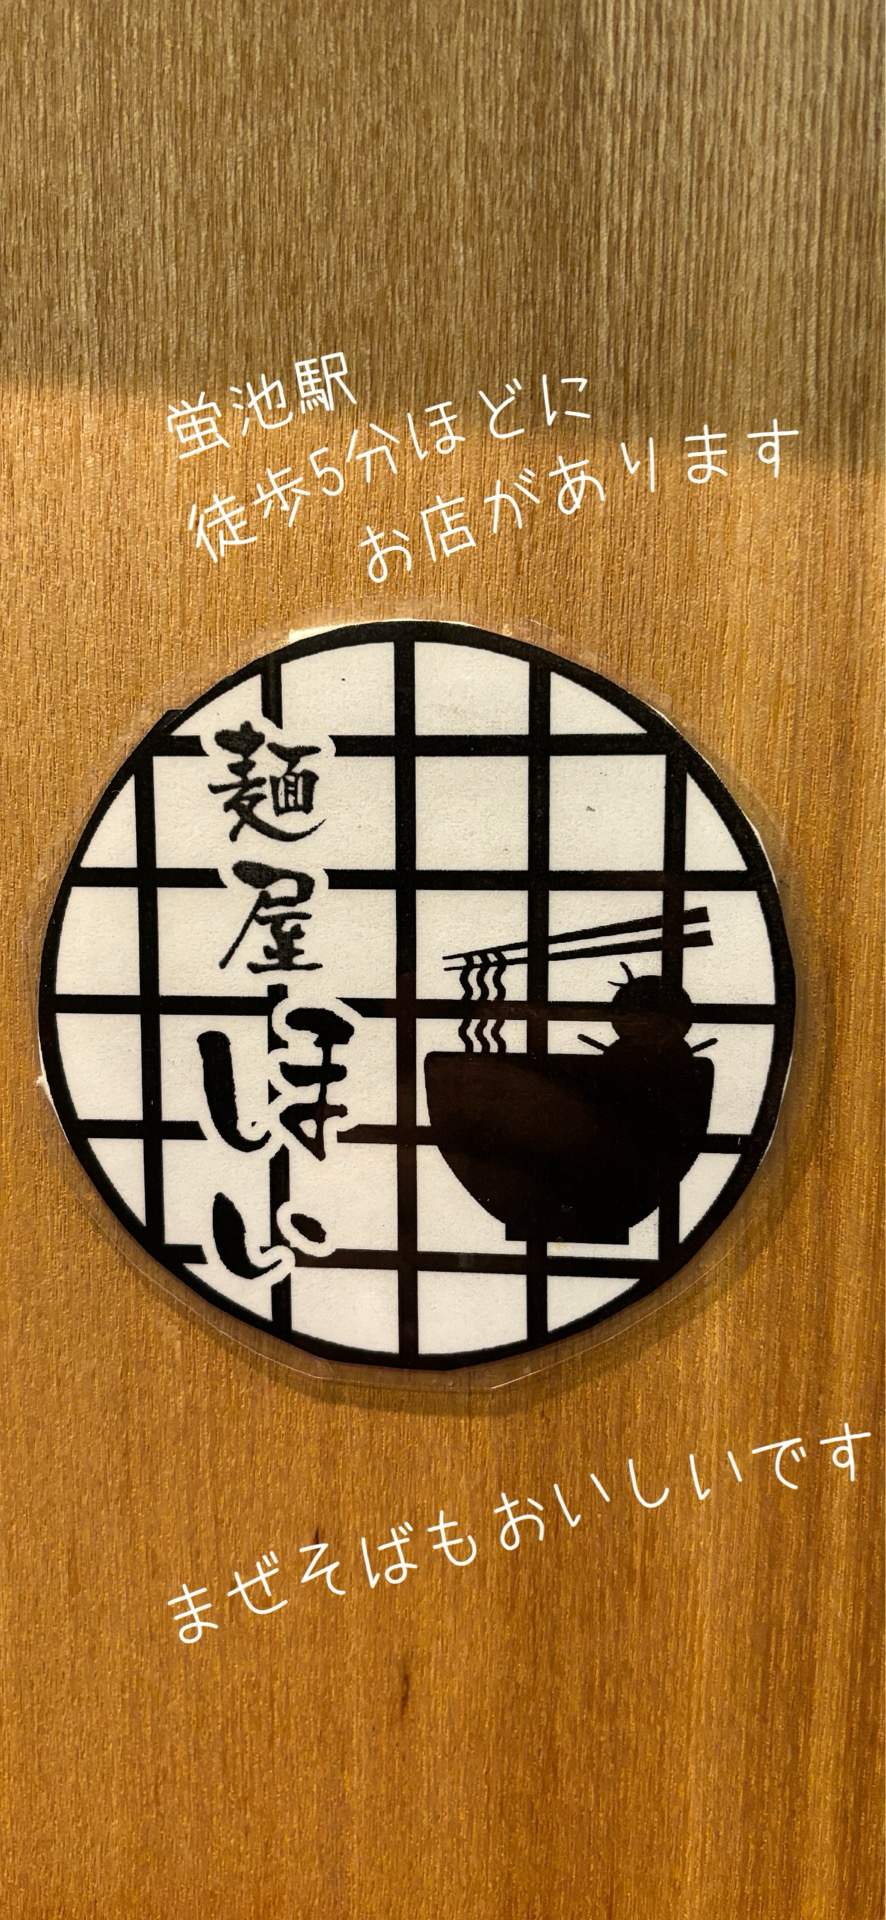 蛍池駅
徒歩5分ほどに
お店があります
麺屋
ほい
まぜそばもおいしいです